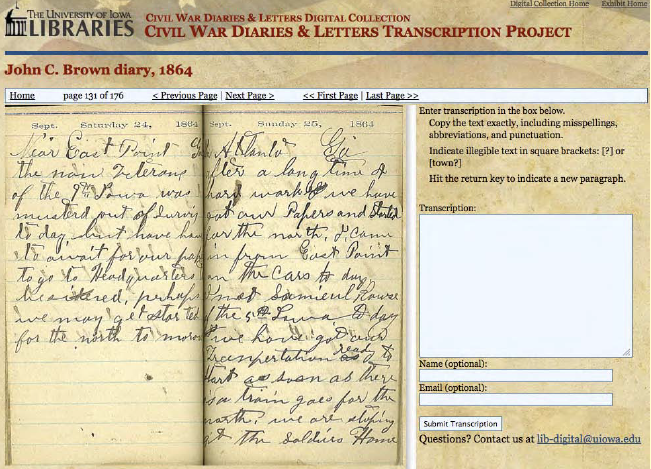 THE UNIVERSITY OF IOWA
LIBRARIES
Digital Collection Home Exhibit Home
CIVIL WAR DIARIES & LETTERS DIGITAL COLLECTION
CIVIL WAR DIARIES & LETTERS TRANSCRIPTION PROJECT
John C. Brown diary, 1864
Home page 131 of 176 < Previous Page | Next Page > << First Page | Last Page >>
Sept. Saturday 24, 1864
Near East Point
the non Veterans
of the 9th Iowa was
musterd out of Survis
to day, but have
to await for our
to go to Headquarters
perhaps
we may get started
for the north to morow
Sept. Sunday 25, 1864
Atlanta Ga
after a long time &
hard work we have
got our Papers and Started
for the north, I came
in from East Point
on the Cars to day
I met
of the 5th Iowa to day
we have got our
Transpertation ready to
start as soon as there
is a train goes for the
north, we are stoping
at the Soldiers Home
Enter transcription in the box below.
Copy the text exactly, including misspellings,
abbreviations, and punctuation.
Indicate illegible text in square brackets: [?] or
[town?]
Hit the return key to indicate a new paragraph.
Transcription:
Name (optional):
Email (optional):
Submit Transcription
Questions? Contact us at lib-digital@uiowa.edu